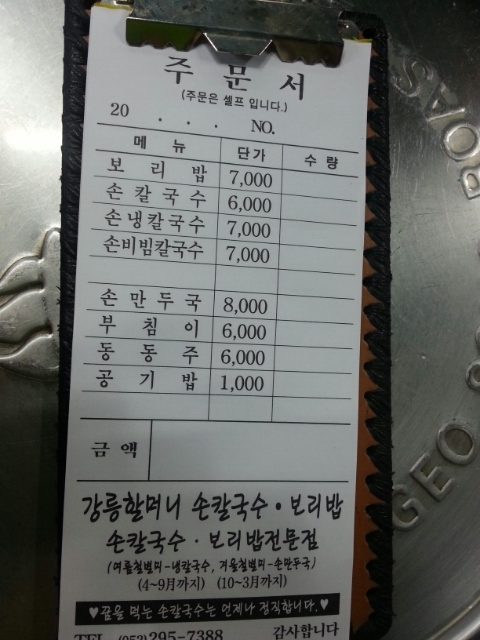 주 문 서
(주문은 셀프 입니다.)
20 . . . NO.
메 뉴 단가 수량
보 리 밥 7,000
손칼국수 6,000
손냉칼국수 7,000
손비빔칼국수 7,000
손만두국 8,000
부 침 이 6,000
동 동 주 6,000
공 기 밥 1,000
금 액
강릉할머니 손칼국수·보리밥
손칼국수·보리밥전문점
(여름철별미-냉칼국수, 겨울철별미-손만두국)
(4~9月까지) (10~3月까지)
♥꿈을 먹는 손칼국수는 언제나 정직합니다.♥
TEL (053)295-7388 감사합니다
GEO
BOAS